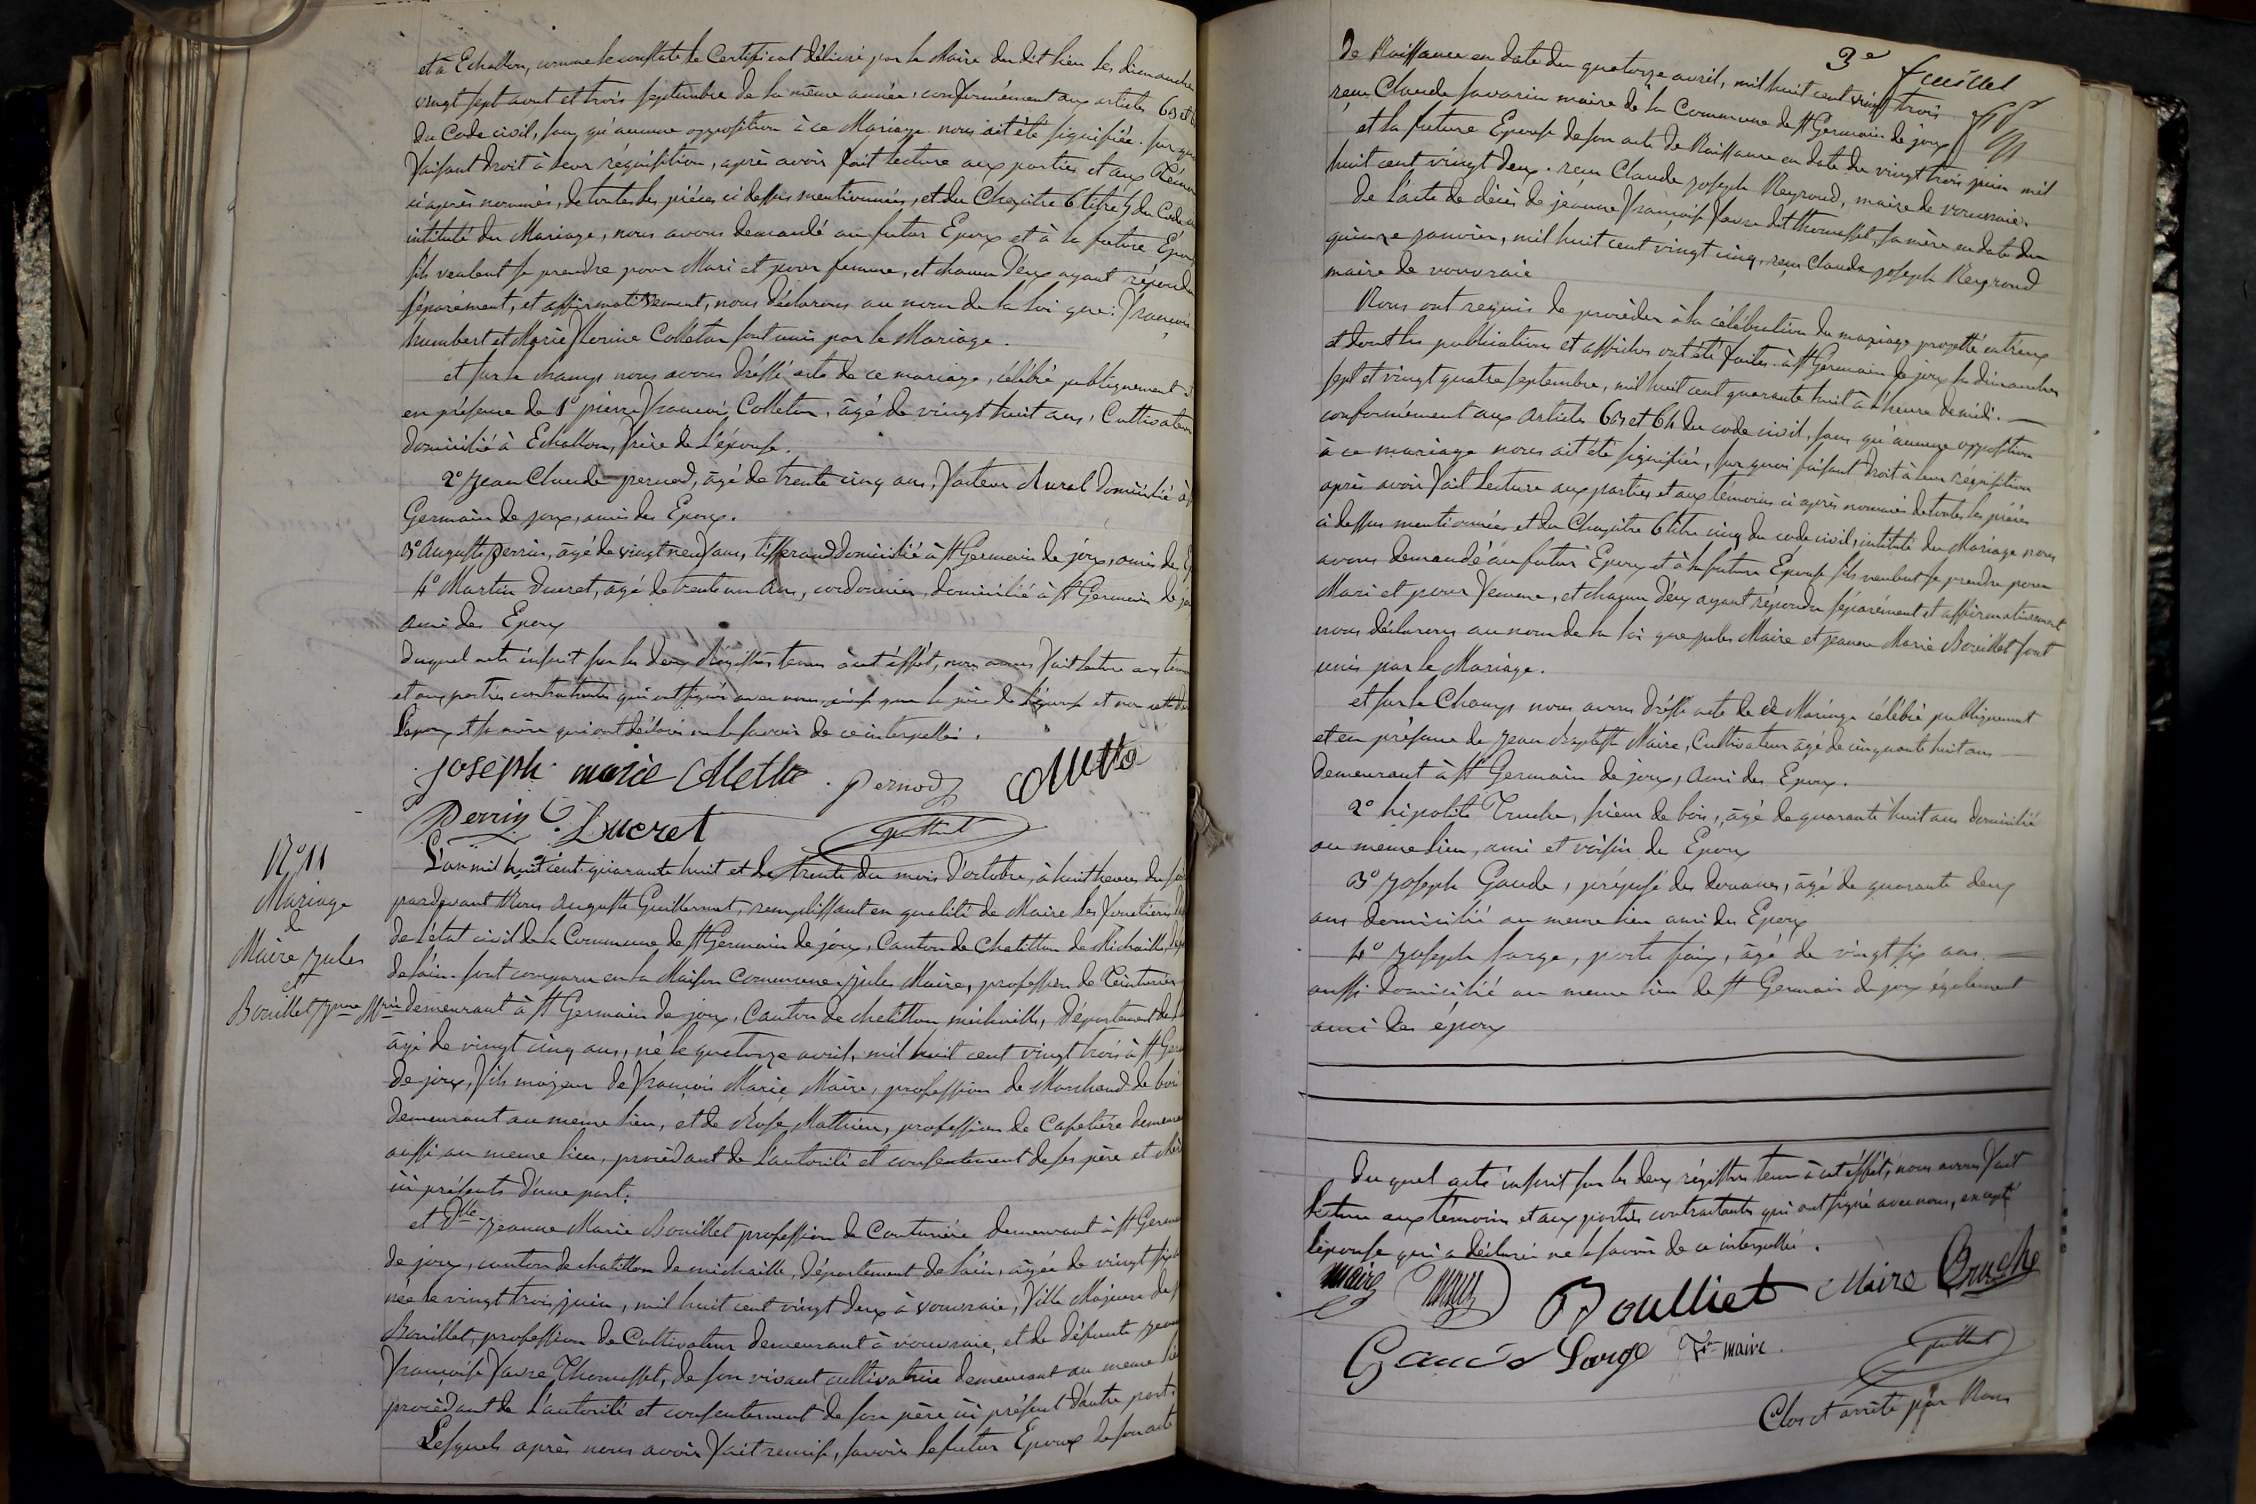 et à Echallon, comme le constate le Certificat délivré par le Maire du dit lieu les dimanches
vingt sept aout et trois septembre de la même année, conformément aux articles 63 et
du Code civil, sans qu'aucune opposition à ce Mariage nous ait été signifiée. sur quoi
faisant droit à leur réquisition, après avoir fait lecture aux parties et aux Témoins
ci après nommés, de toutes les pièces ci dessus mentionnées, et du Chapitre 6 titre 5 du Code
intitulé du Mariage, nous avons demandé au futur Epoux et à la future Epouse
s'ils veulent se prendre pour Mari et pour femme, et chacun d'eux ayant répondu
séparément, et affirmativement, nous déclarons au nom de la loi que: françois
humbert et Marie florine Colletta sont unis par le Mariage.
et sur le champs nous avons dréssé acte de ce mariage, célébré publiquement
en présence de 1° pierre françois Colletta, âgé de vingt huit ans, Cultivateur
domicilié à Echallon, frère de l'épouse.
2° Jean Claude pernod, âgé de trente cinq ans, facteur Rural domicilié à
Germain de joux, ami des Epoux.
3° Auguste perrin, âgé de vingt neuf ans, tisserand domicilié à St Germain de joux, ami des
4° Martin Ducret, âgé de trente un ans, cordonnier, domicilié à St Germain de jo
ami des Epoux
duquel acte inscrit sur les deux Régistres tenus à cet éffet, nous avons fait lecture aux tem
et aux parties contractantes qui ont signé avec nous, ainsi que le père de l'épouse et non
l'époux et sa mère qui ont déclaré ne le savoir de ce interpellés.
joseph marie Colletta . Pernod Colletta
Perrin C. Ducret
N° 11
Mariage
de
Maire Jules
et
Bouillet Jnne Mrie
L'an mil huit cent quarante huit et le trente du mois d'octobre, à huit heures du soir
pardevant Nous Auguste Guillermet, remplissant en qualité de Maire les fonctions
de l'état civil de la Commune de St Germain de joux, Canton de Chatillon de Michaille,
de l'ain. sont comparu en la Maison Commune jules Maire, profession de Teinturier
demeurant à St Germain de joux, Canton de chatillon michaille, Département de
âgé de vingt cinq ans, né le quatorze avril, mil huit cent vingt trois à St Ger
de joux, fils majeur de françois Marie Maire, profession de Marchand de bois
demeurant au meme lieu, et de Rose Mathieu, profession de Cafetière demeu
aussi au meme lieu, procèdant de l'autorité et consentement de ses père et mère
ici présents d'une part.
et Dlle Jeanne Marie Bouillet profession de Couturière demeurant à St Germ
de joux, canton de chatillon de michaille, Département de l'ain, âgée de vingt six
née le vingt trois juin, mil huit cent vingt deux à vouvraie, fille Majeure de
Bouillet, profession de Cultivateur demeurant à vouvraie, et de défunte Jeanne
françoise favre Thomasset, de son vivant cultivatrice demeurant au meme lieu
procèdant de l'autorité et consentement de son père ici présent d'autre part.
Lesquels après nous avoir fait remise, savoir le futur Epoux de son acte
3e feuillet
de Naissance en date du quatorze avril, mil huit cent vingt trois
reçu Claude Savarin maire de la Commune de St Germain de joux
et la future Epouse de son acte de Naissance en date du vingt trois juin mil
huit cent vingt deux. reçu Claude joseph Reyroud, maire de vouvraie.
de l'acte de décès de jeanne françoise favre dit thomasset, sa mère en date du
quinze janvier, mil huit cent vingt cinq, reçu Claude joseph Reyroud
maire de vouvraie
Nous ont requis de procèder à la célébration du mariage projetté entr'eux
et dont les publications et affiches ont été faites à St Germain de joux les dimanches
sept et vingt quatre septembre, mil huit cent quarante huit à l'heure de midi. —
conformément aux articles 63 et 64 du code civil, sans qu'aucune opposition
à ce mariage nous ait été signifiée, sur quoi faisant droit à leur réquisition
après avoir fait lecture aux parties et aux témoins ci après nommés de toutes les pièces
ci dessus mentionnées et du Chapitre 6 titre cinq du code civil, intitulé du Mariage nous
avons demandé au futur Epoux et à la future Epouse s'ils veulent se prendre pour
Mari et pour femme, et chacun d'eux ayant répondu séparément et affirmativement
nous déclarons au nom de la loi que jules Maire et jeanne Marie Bouillet sont
unis par le Mariage.
et sur le Champs nous avons dréssé acte de ce Mariage célébré publiquement
et en présence de Jean Baptiste Maire, Cultivateur âgé de cinquante huit ans
demeurant à St Germain de joux, ami des Epoux.
2° hipolite Truche, scieur de bois, âgé de quarante huit ans domicilié
au meme lieu, ami et voisin des Epoux
3° joseph Gaude, préposé des douanes, âgé de quarante deux
ans domicilié au meme lieu ami des Epoux
4° joseph large, porte faix, âgé de vingt six ans. —
aussi domicilié au meme lieu de St Germain de joux également
ami des époux
duquel acte inscrit sur les deux régistres tenus à cet éffet, nous avons fait
lecture aux témoins et aux parties contractantes qui ont signé avec nous, excepté
l'épouse qui a déclaré ne le savoir de ce interpellée.
maire Boulliet Maire Truche
Large Fs maire.
Clos et arrêté par Nous